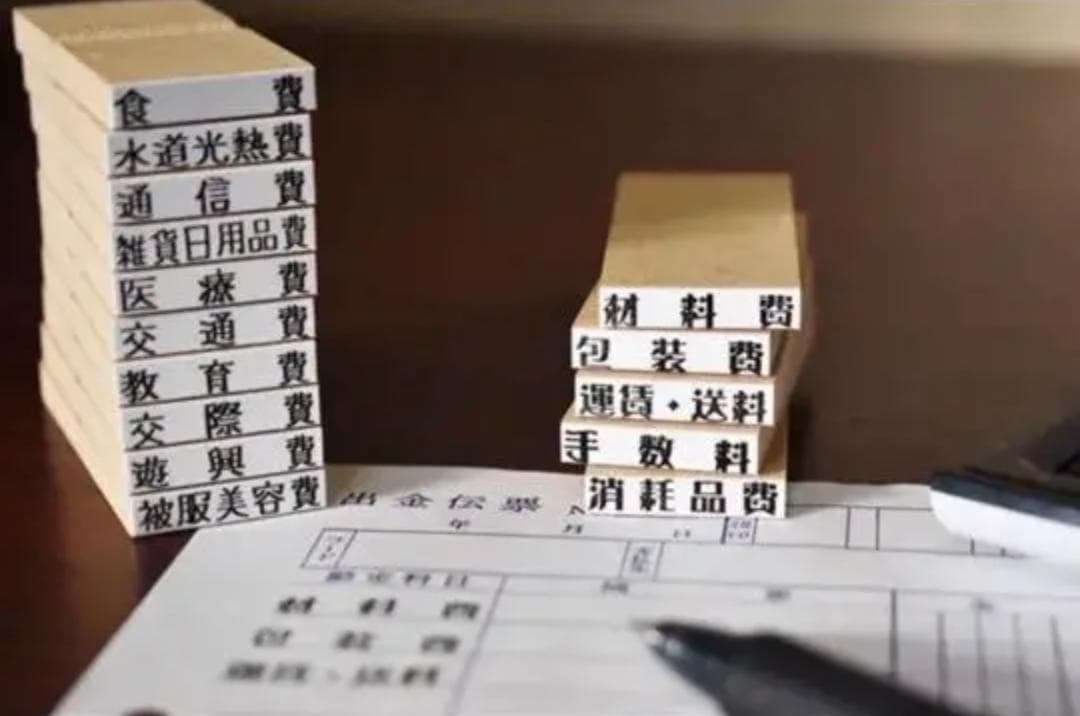 食費
水道光熱費
通信費
雑貨日用品費
医療費
交通費
教育費
交際費
遊興費
被服美容費
材料費
包装費
運賃・送料
手数料
消耗品費
出金伝票
年 月 日
勘定科目
材料費
包装費
運賃・送料